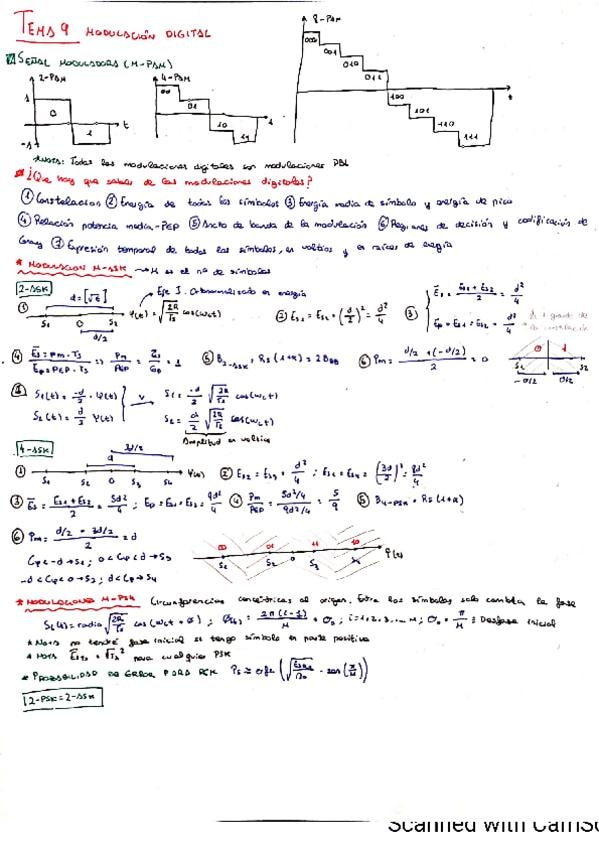 TEMA 9 MODULACIÓN DIGITAL
8-PAM
000
001
010
011
100
101
110
111
t
SEÑAL MODULADORA (M-PAM)
2-PAM
4-PAM
1
0
1
t
-1
00
01
10
11
t
*NOTA: Todas las modulaciones digitales son modulaciones DBL
* ¿Que hay que saber de las modulaciones digitales?
① Constelacion ② Energía de todos los símbolos ③ Energía media de símbolo y energía de pico
④ Relación potencia media-PEP ⑤ Ancho de banda de la modulación ⑥ Regiones de decisión y codificación de
Gray ⑦ Expresión temporal de todos los símbolos, en voltios y en raíces de energía
* MODULACION M-ASK → M es el nº de símbolos
2-ASK
① d=[√E] Eje I. Ortonormalizado en energía
S1 0 S2 Ψ(t) = √(2R/Ts) cos(wct)
d/2
② Es1 = Es2 = (d/2)² = d²/4
③ Ēs = (Es1 + Es2)/2 = d²/4
Ep = Es1 = Es2 = d²/4
④ Ēs = Pm · Ts
Ep = PEP · Ts => Pm/PEP = Ēs/Ep = 1
⑤ B2-ASK = Rs (1+α) = 2BBB
⑥ Pm = (d/2 + (-d/2))/2 = 0
0 1
S1 S2
-d/2 d/2
S1(t) = -d/2 · Ψ(t)
S2(t) = d/2 Ψ(t)
V
S1 = -d/2 √(2R/Ts) cos(wct)
S2 = d/2 √(2R/Ts) cos(wct)
Amplitud en voltios
4-ASK
3d/2
d
① S1 S2 0 S3 S4 Ψ(t)
② Es2 = Es3 = d²/4 ; Es1 = Es4 = (3d/2)² = 9d²/4
③ Ēs = (Es1 + Es2)/2 = 5d²/4 ; Ep = Es1 = Es4 = 9d²/4
④ Pm/PEP = (5d²/4)/(9d²/4) = 5/9
⑤ B4-ASK = Rs (1+α)
⑥ Pm = (d/2 + 3d/2)/2 = d
00 01 11 10
S1 S2 0 S3 S4
* MODULACIONES M-PSK Circunferencias concéntricas al origen. Entre los símbolos solo cambia la fase
Si(t) = radio √(2R/Ts) cos(wct + ø) ; = 2π(i-1)/M + σ0 ; i = 1,2,3,...M ; σ0 = π/M = Desfase inicial
* Nota no tendré fase inicial si tengo símbolo en parte positiva
para cualquier PSK
* PROBABILIDAD DE ERROR PARA PSK
2-PSK = 2-ASK
Scanned with CamSc